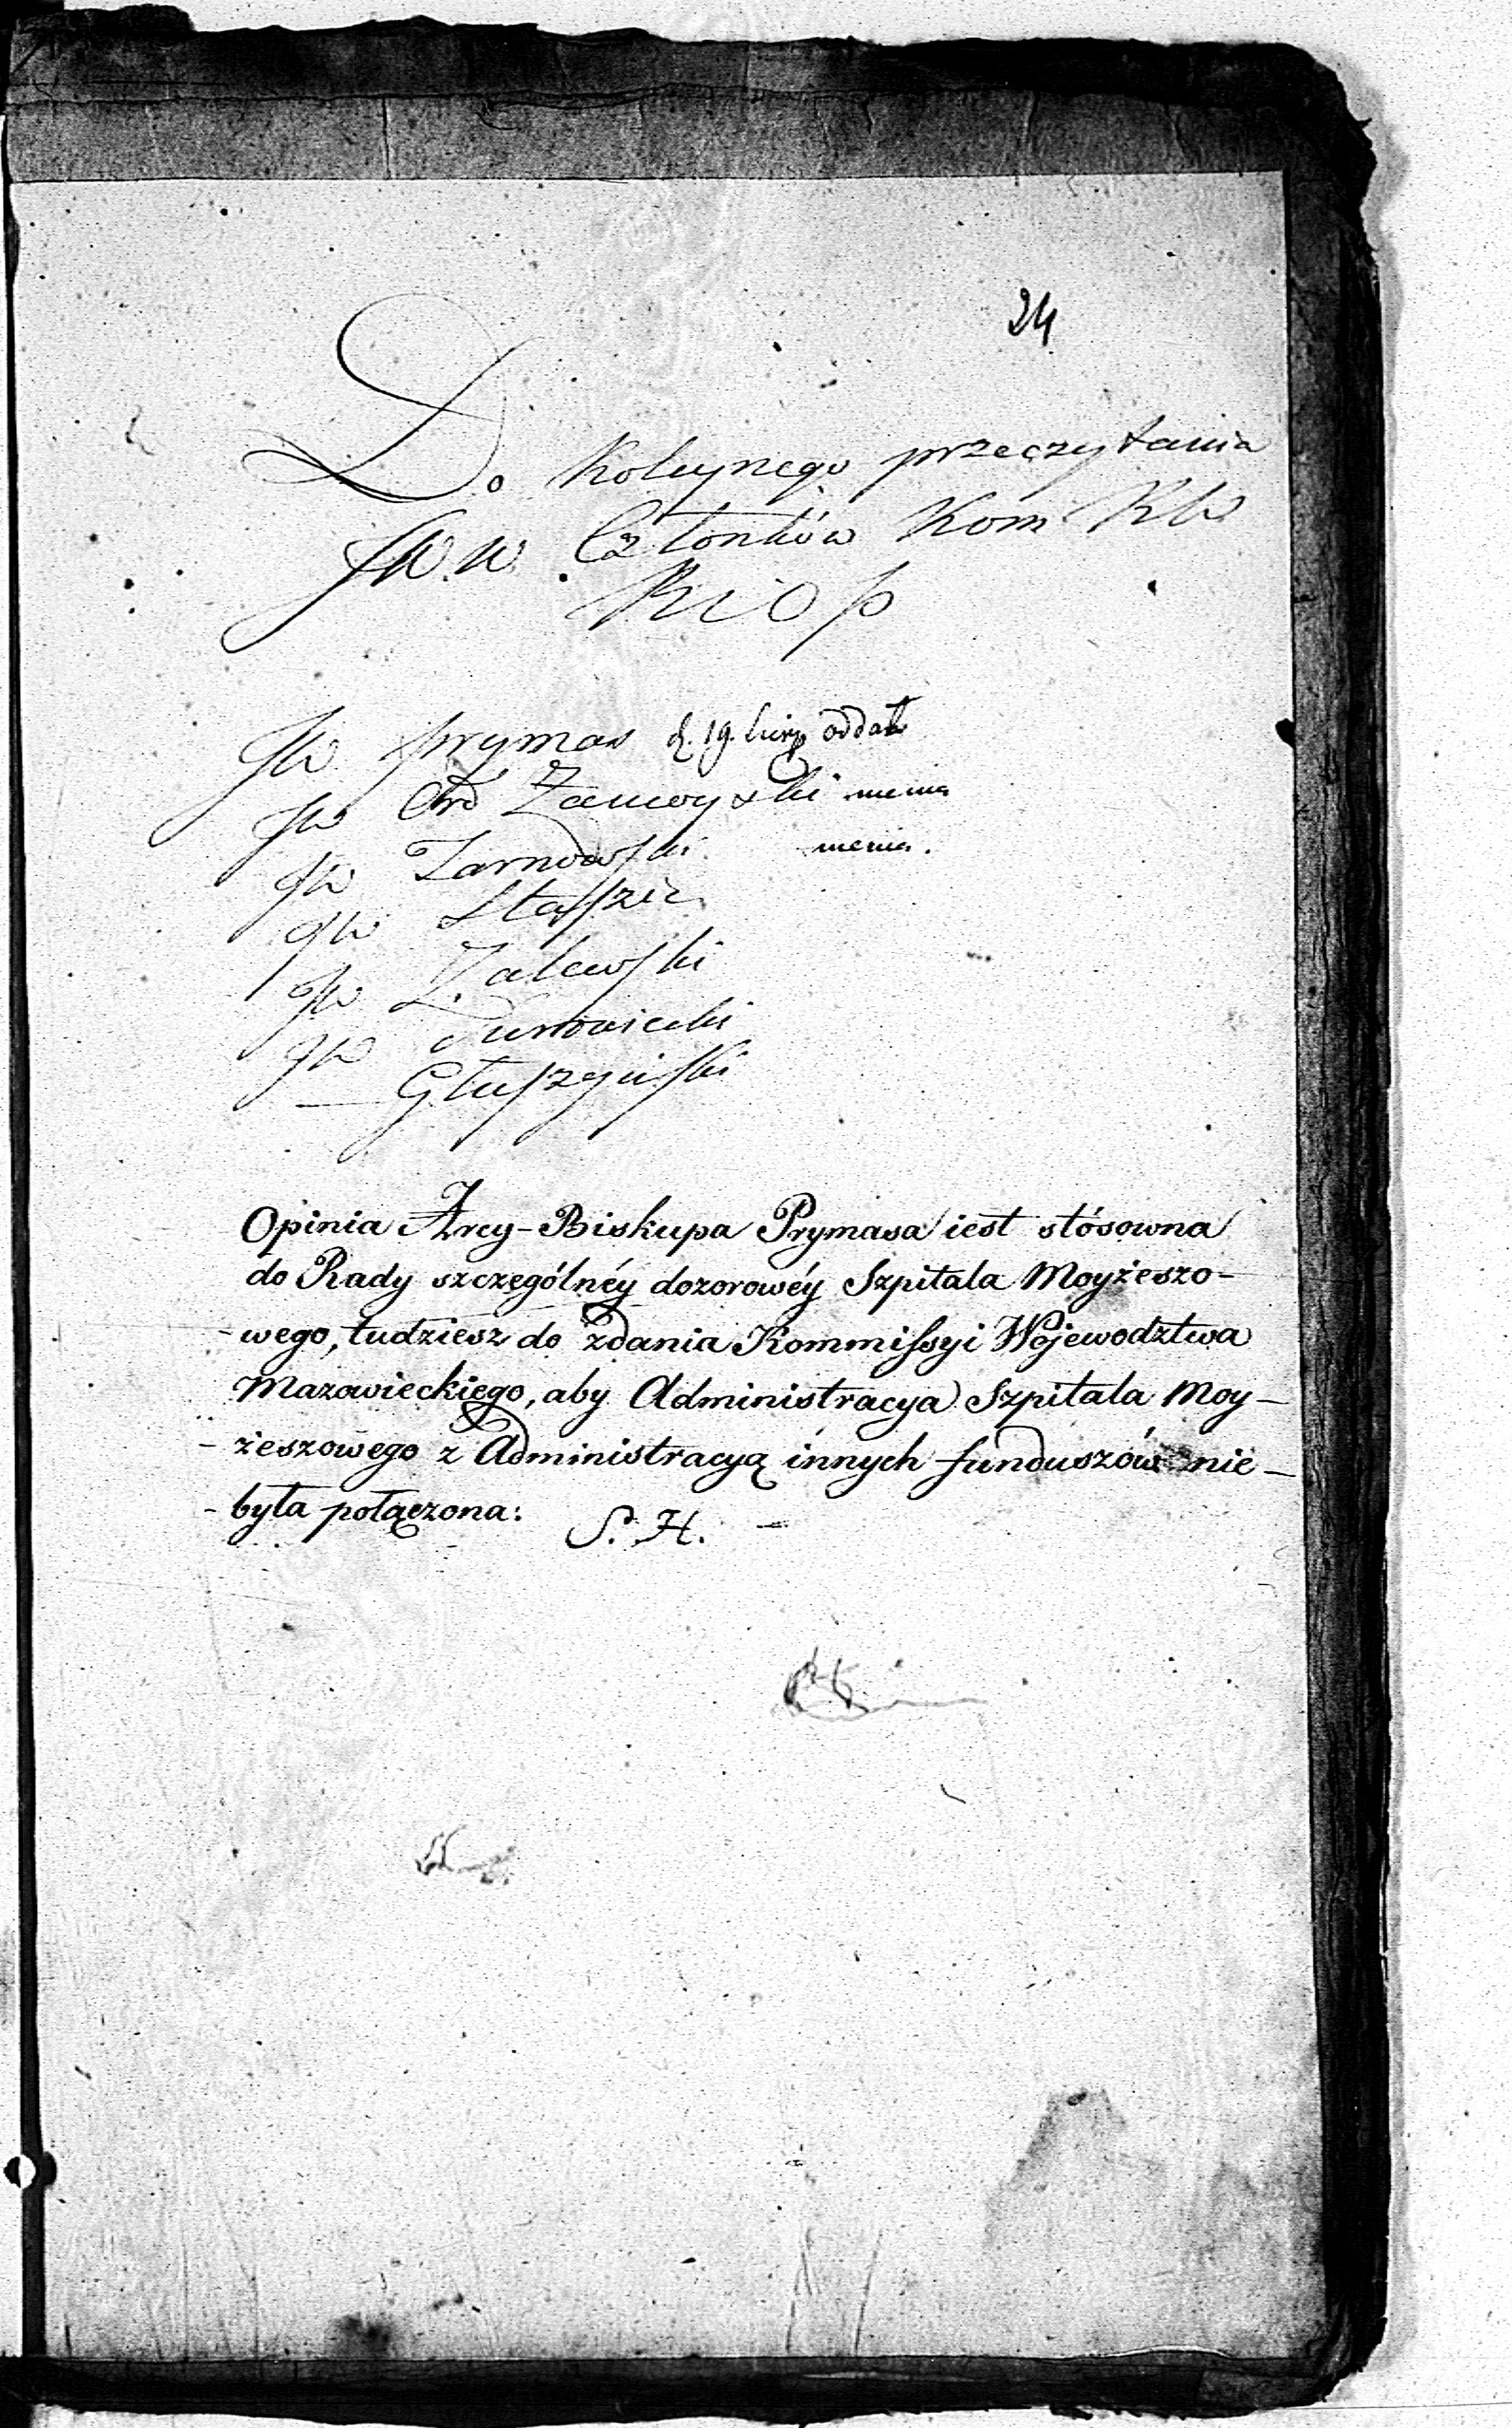 24
Do Koleynego przeczytania
JW. W. Członków Kom RW
RiOp
JW Prymas d. 19. Sierp oddał
JW Ord Zamoyski niema
JW Tarnowski niema.
JW Staszic
JW Zalewski
JW Surowiecki
— Głuszyński
Opinia Arcy-Biskupa Prymasa iest stósowna
do Rady szczególnéy dozorowéy Szpitala Moyżeszo-
-wego, tudziesz do zdania Kommissyi Wojewodztwa
Mazowieckiego, aby Administracya Szpitala Moy-
-żeszowego z Administracyą innych funduszów nie-
-była połączona: S. H. —